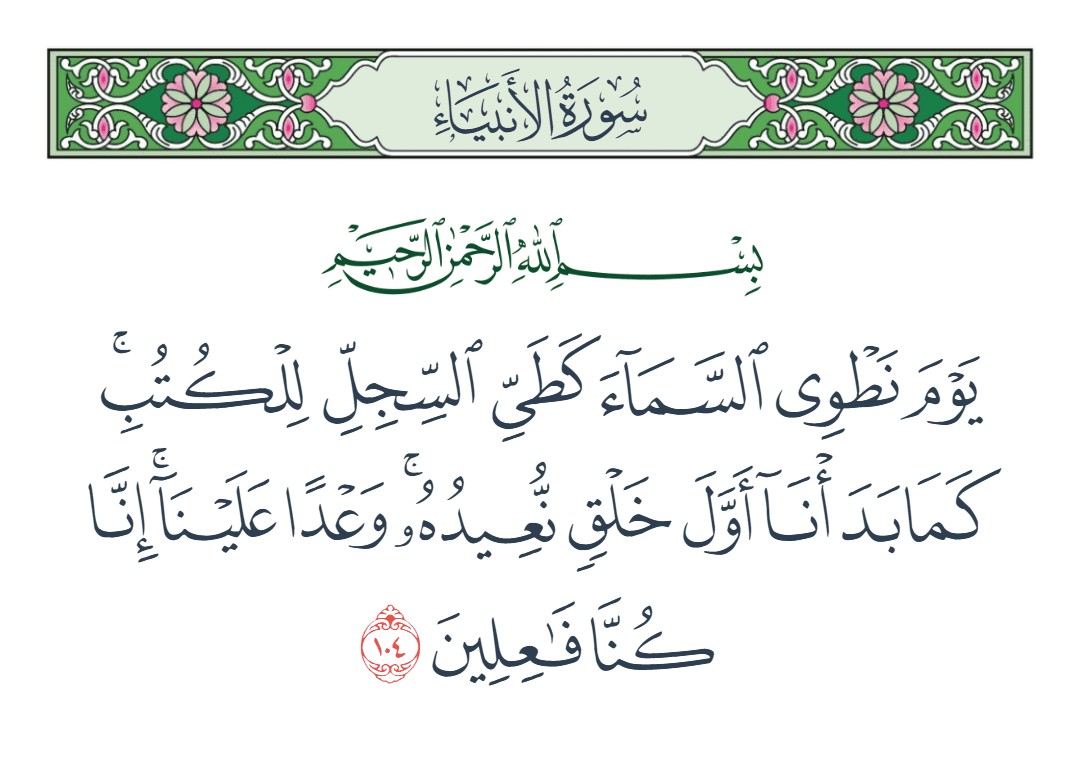 سُورَةُ الأَنبِيَاءِ
بِسْمِ ٱللَّهِ ٱلرَّحْمَٰنِ ٱلرَّحِيمِ
يَوْمَ نَطْوِى ٱلسَّمَآءَ كَطَىِّ ٱلسِّجِلِّ لِلْكُتُبِ ۚ
كَمَا بَدَأْنَآ أَوَّلَ خَلْقٍ نُّعِيدُهُۥ ۚ وَعْدًا عَلَيْنَآ ۚ إِنَّا
كُنَّا فَٰعِلِينَ ١٠٤